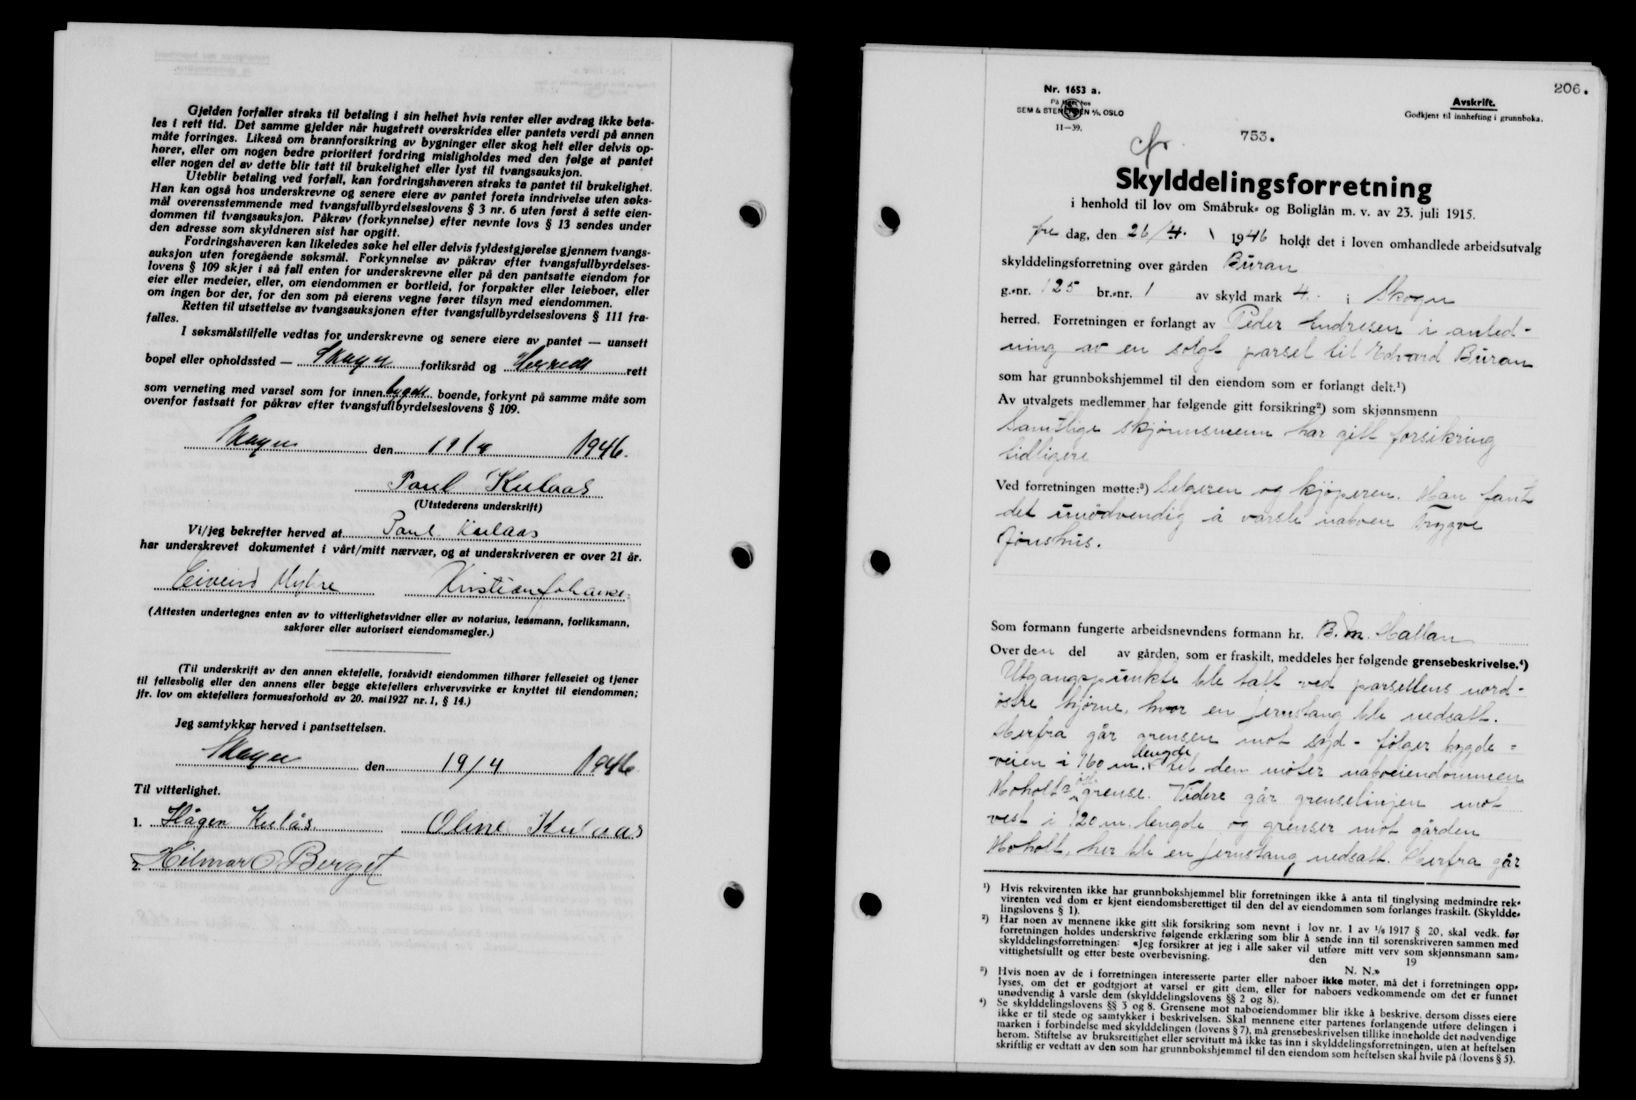 Gjelden forfaller straks til betaling i sin helhet hvis renter eller avdrag ikke beta-
les i rett tid. Det samme gjelder når hugstrett overskrides eller pantets verdi på annen
måte forringes. Likeså om brannforsikring av bygninger eller skog helt eller delvis op-
hører, eller om nogen bedre prioritert fordring misligholdes med den følge at pantet
eller nogen del av dette blir tatt til brukelighet eller lyst til tvangsauksjon.
Uteblir betaling ved forfall, kan fordringshaveren straks ta pantet til brukelighet.
Han kan også hos underskrevne og senere eiere av pantet foreta inndrivelse uten søks-
mål overensstemmende med tvangsfullbyrdelseslovens § 3 nr. 6 uten først å sette eien-
dommen til tvangsauksjon. Påkrav (forkynnelse) efter nevnte lovs § 13 sendes under
den adresse som skyldneren sist har opgitt.
Fordringshaveren kan likeledes søke hel eller delvis fyldestgjørelse gjennem tvangs-
auksjon uten foregående søksmål. Forkynnelse av påkrav efter tvangsfullbyrdelses-
lovens § 109 skjer i så fall enten for underskrevne eller på den pantsatte eiendom for
eier eller medeier, eller, om eiendommen er bortleid, for forpakter eller leieboer, eller
om ingen bor der, for den som på eierens vegne fører tilsyn med eiendommen.
Retten til utsettelse av tvangsauksjonen efter tvangsfullbyrdelseslovens § 111 fra-
falles.
I søksmålstilfelle vedtas for underskrevne og senere eiere av pantet — uansett
bopel eller opholdssted — Skogn forliksråd og Herreds rett
som verneting med varsel som for innen bygds boende, forkynt på samme måte som
ovenfor fastsatt for påkrav efter tvangsfullbyrdelseslovens § 109.
Skogn den 19/4 1946.
Paul Kulaas
(Utstederens underskrift)
Vi/jeg bekrefter herved at Paul Kulaas
har underskrevet dokumentet i vårt/mitt nærvær, og at underskriveren er over 21 år.
Eivind Myhre Kristian Johanse.
(Attesten undertegnes enten av to vitterlighetsvidner eller av notarius, lensmann, forliksmann,
sakfører eller autorisert eiendomsmegler.)
(Til underskrift av den annen ektefelle, forsåvidt eiendommen tilhører felleseiet og tjener
til fellesbolig eller den annens eller begge ektefellers erhvervsvirke er knyttet til eiendommen;
jfr. lov om ektefellers formuesforhold av 20. mai 1927 nr. 1, § 14.)
Jeg samtykker herved i pantsettelsen.
Skogn den 19/4 1946
Til vitterlighet.
1. Hågen Kulås. Oline Kulaas
2. Hilmar O Berget
206.
Nr. 1653 a.
På lager hos
SEM & STENERSEN A/S. OSLO
11—39.
Avskrift.
Godkjent til innhefting i grunnboka.
Nr. 753.
Skylddelingsforretning
i henhold til lov om Småbruk- og Boliglån m. v. av 23. juli 1915.
fre dag, den 26/4. 1946 holdt det i loven omhandlede arbeidsutvalg
skylddelingsforretning over gården Buran
g.-nr. 125 br.-nr. 1 av skyld mark 4. i Skogn
herred. Forretningen er forlangt av Peder Endresen i anled-
ning av en solgt parsel til Edvard Buran
som har grunnbokshjemmel til den eiendom som er forlangt delt.¹)
Av utvalgets medlemmer har følgende gitt forsikring²) som skjønnsmenn
Samtlige skjønnsmenn har gitt forsikring
tidligere
Ved forretningen møtte:³) Selgeren og kjøperen. Man fant
det unødvendig å varsle naboen Trygve
Jønshus.
Som formann fungerte arbeidsnevndens formann hr. B. M. Hallan
Over den del av gården, som er fraskilt, meddeles her følgende grensebeskrivelse.⁴)
Utgangspunkte ble tatt ved parsellens nord-
østre hjørne, hvor en jernstang ble nedsatt.
Herfra går grensen mot syd - følger bygde-
veien i 160 m. lengde til den møter naboeiendommen
Moholts østgrense. Videre går grenselinjen mot
vest i 120 m. lengde og grenser mot gården
Moholt, her ble en jernstang nedsatt. Herfra går
¹) Hvis rekvirenten ikke har grunnbokshjemmel blir forretningen ikke å anta til tinglysing medmindre rek-
virenten ved dom er kjent eiendomsberettiget til den del av eiendommen som forlanges fraskilt. (Skyldde-
lingslovens § 1).
²) Har noen av mennene ikke gitt slik forsikring som nevnt i lov nr. 1 av 1/6 1917 § 20, skal vedk. før
forretningen holdes underskrive følgende erklæring som blir å sende inn til sorenskriveren sammen med
skylddelingsforretningen: «Jeg forsikrer at jeg i alle saker vil utføre mitt verv som skjønnsmann sam-
vittighetsfullt og etter beste overbevisning. den 19
N. N.»
³) Hvis noen av de i forretningen interesserte parter eller naboer ikke møter, må det i forretningen opp-
lyses, om det er godtgjort at varsel er gitt dem, eller for naboers vedkommende om det er funnet
unødvendig å varsle dem (skylddelingslovens §§ 2 og 8).
⁴) Se skylddelingslovens §§ 3 og 8. Grensene mot naboeiendommer blir ikke å beskrive, dersom disses eiere
ikke er til stede og samtykker i beskrivelsen. Skal mennene etter partenes forlangende utføre delingen i
marken i forbindelse med skylddelingen (lovens § 7), må grensebeskrivelsen tillike inneholde det nødvendige
herom. Stiftelse av bruksrettighet eller servitutt må ikke tas inn i skylddelingsforretningen, uten at heftelsen
skriftlig er vedtatt av den som har grunnbokshjemmel til den eiendom som heftelsen skal hvile på (lovens § 5).